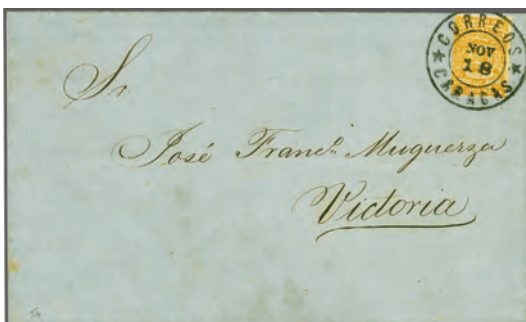 CORREOS
NOV
18
CARACAS
Sr
José Franco. Muguerza
Victoria